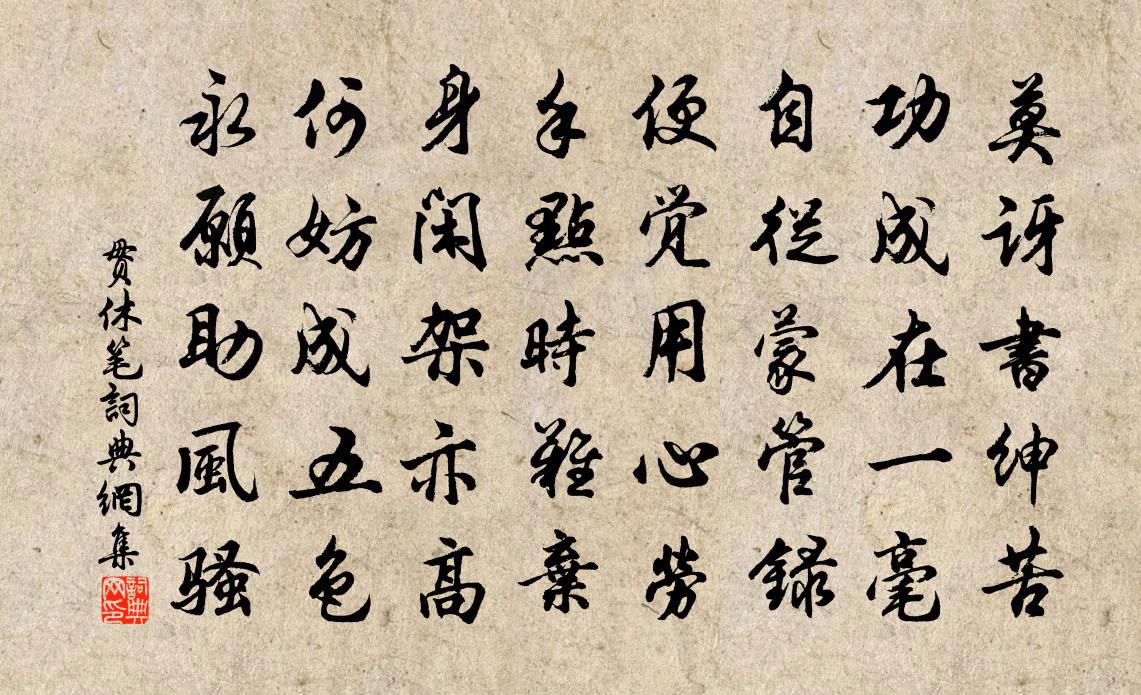 莫訝書紳苦
功成在一毫
自從蒙管錄
便覺用心勞
手點時難棄
身閑架亦高
何妨成五色
永願助風騷
貫休笔詞典網集
詞典网印